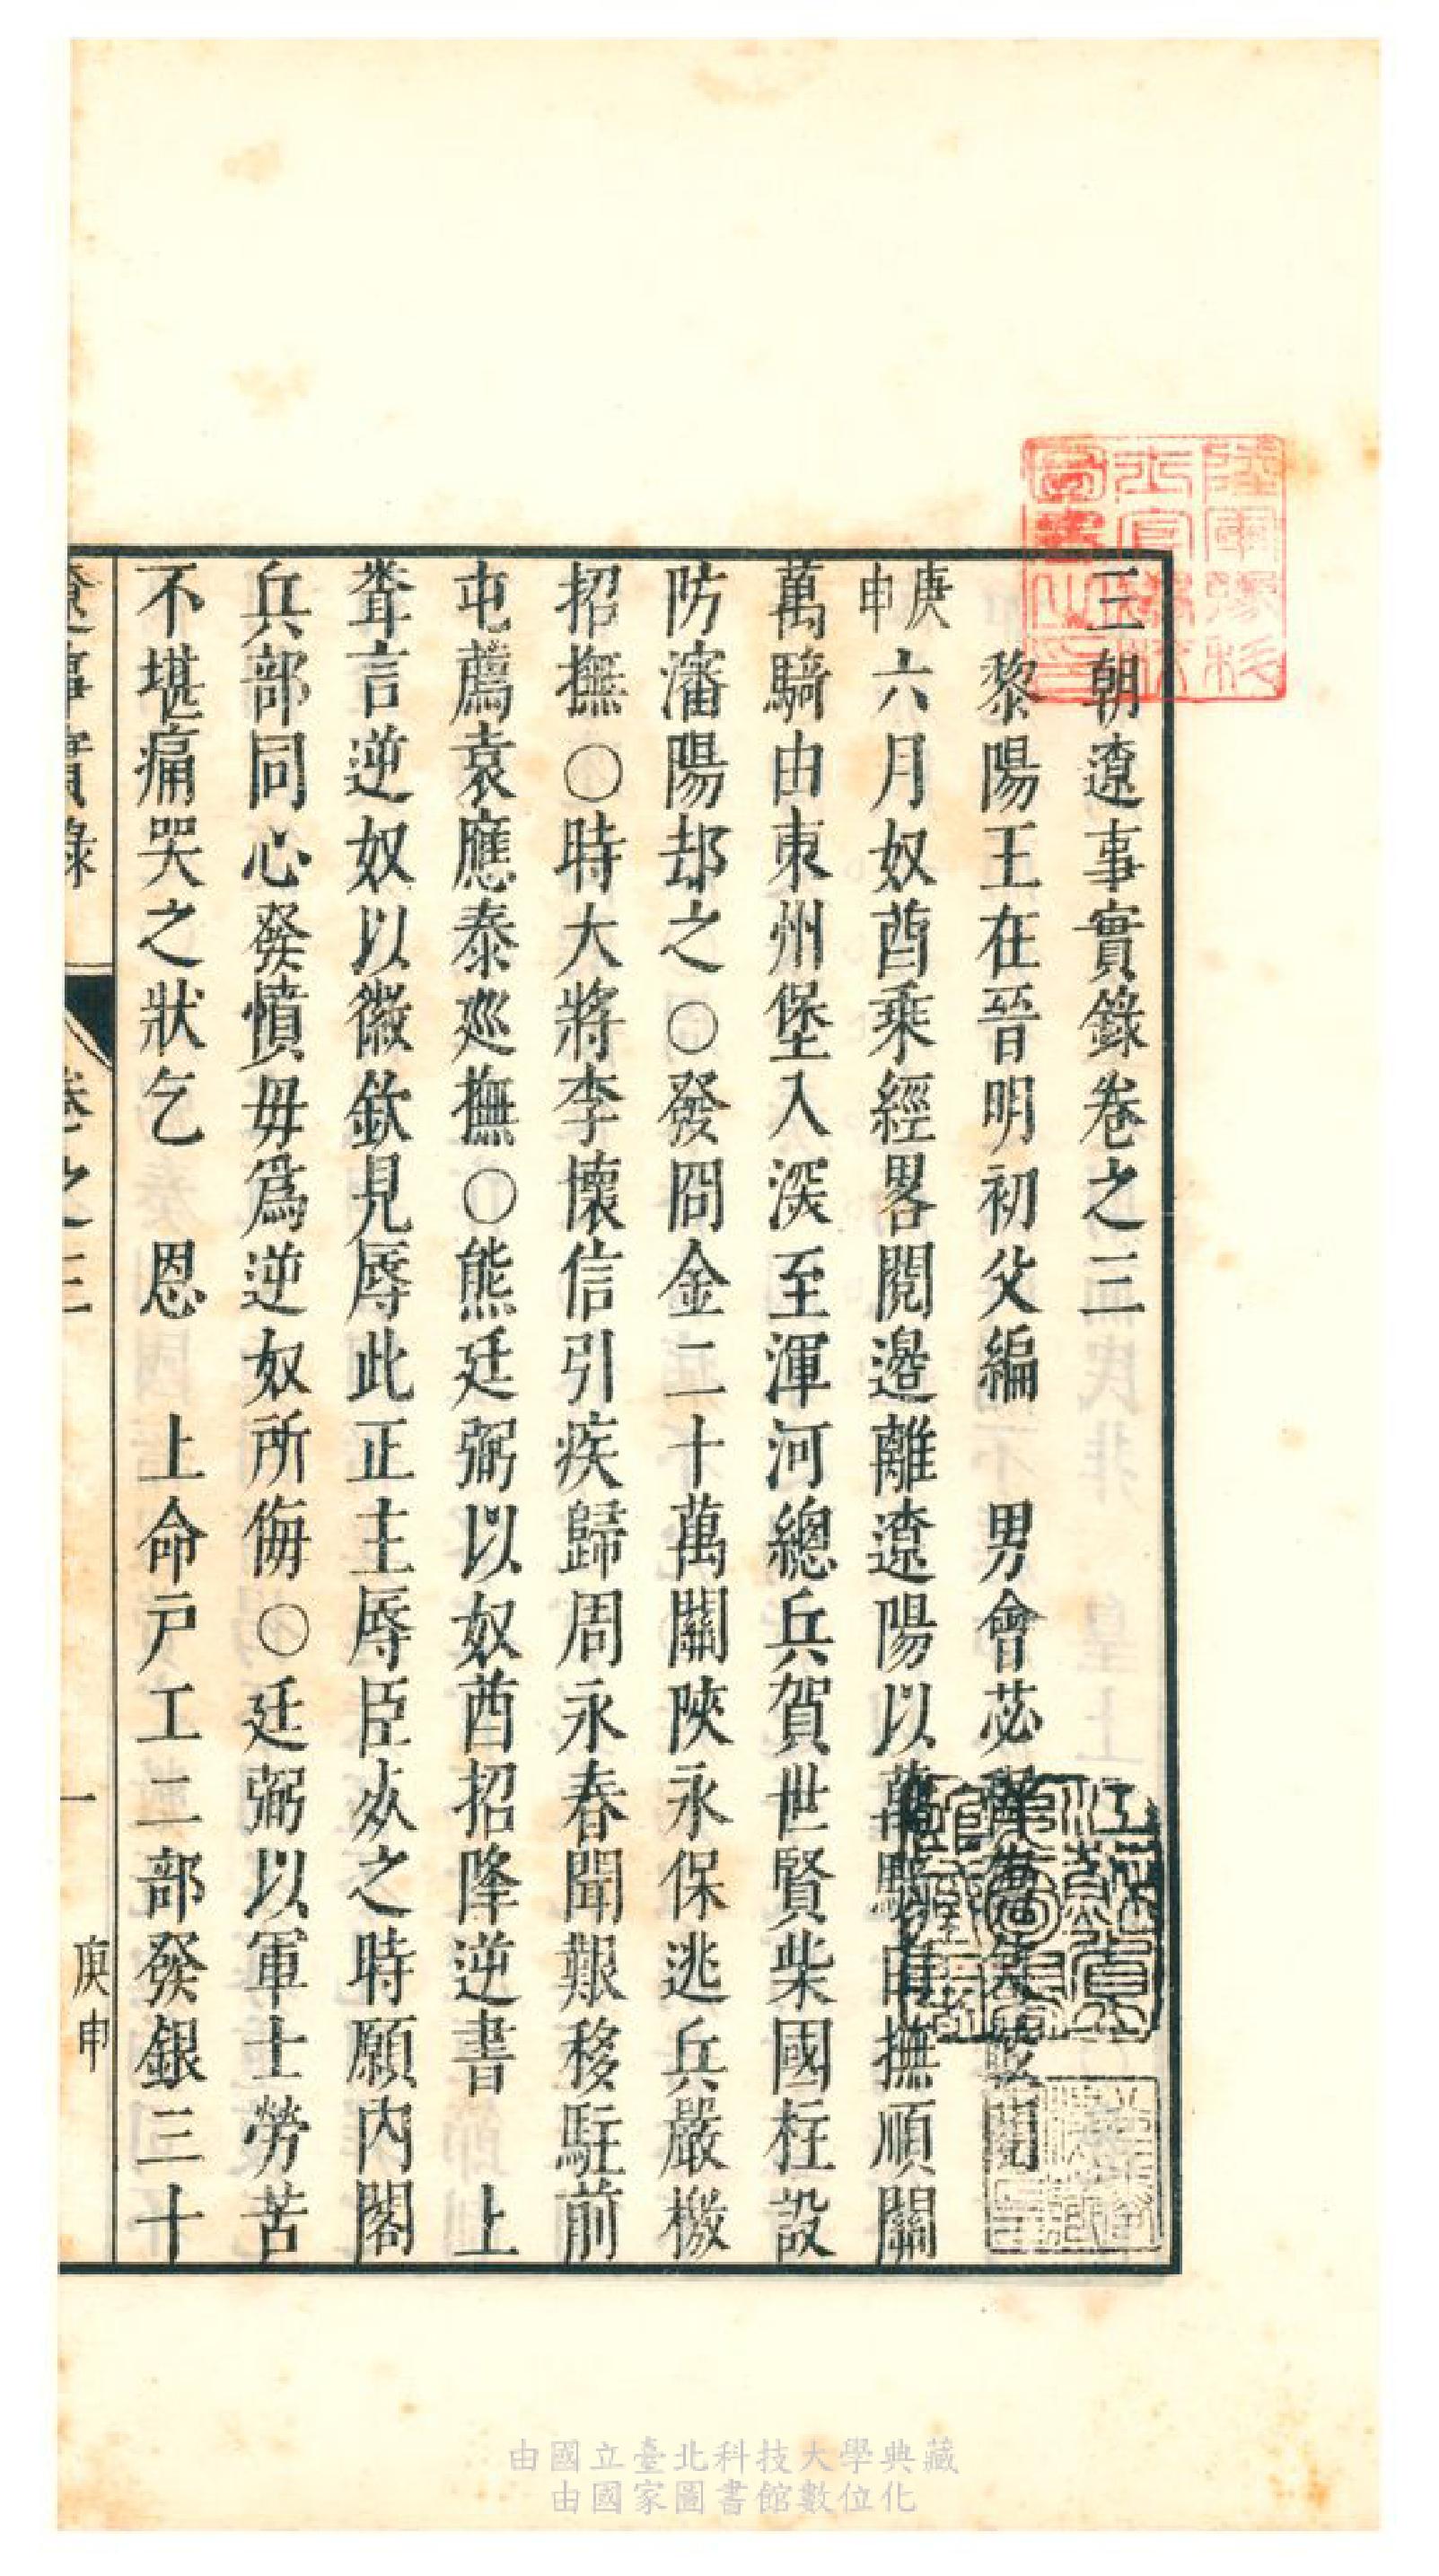 三朝遼事實錄卷之三
黎陽王在晉明初父編　男會苾
庚申六月奴酋乘經畧閱邊離遼陽以萬騎由撫順關
萬騎由東州堡入深至渾河總兵賀世賢柴國柱設
防瀋陽却之○發冏金二十萬關陝永保逃兵嚴檄
招撫○時大將李懷信引疾歸周永春聞艱移駐前
屯薦袁應泰廵撫○熊廷弼以奴酋招降逆書　上
聳言逆奴以徽欽見辱此正主辱臣死之時願內閣
兵部同心發憤毋爲逆奴所侮○廷弼以軍士勞苦
不堪痛哭之狀乞　恩　上命戸工二部發銀三十
遼事實錄　卷之三　一　庚申
由國立臺北科技大學典藏
由國家圖書館數位化